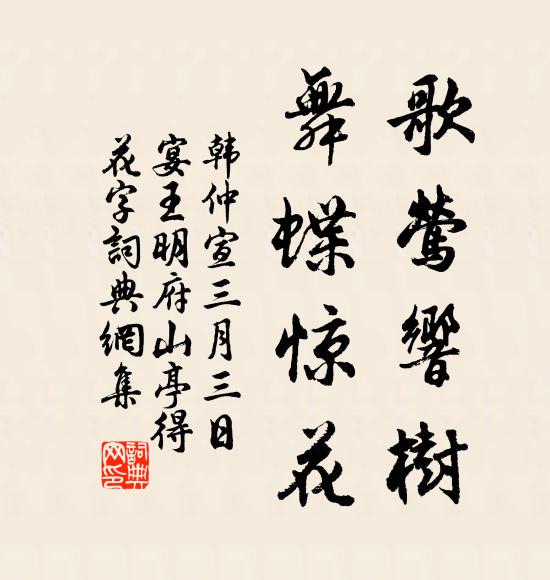 歌莺響樹
舞蝶惊花
韩仲宣三月三日
宴王明府山亭得
花字詞典網集
詞典
网印